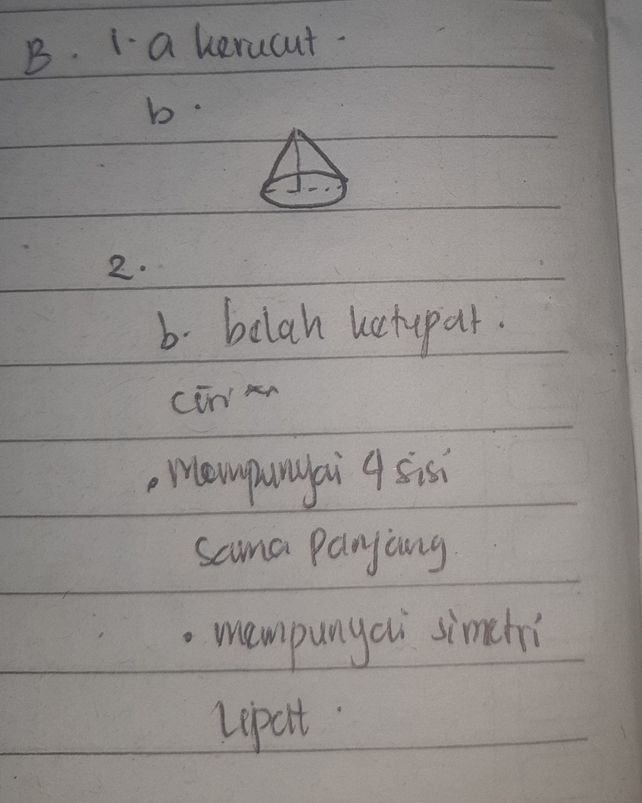 B. 1. a kerucut.
b.
2.
b. belah ketupat.
ciri
. mempunyai 4 sisi
sama panjang
. mempunyai simetri
lipat.